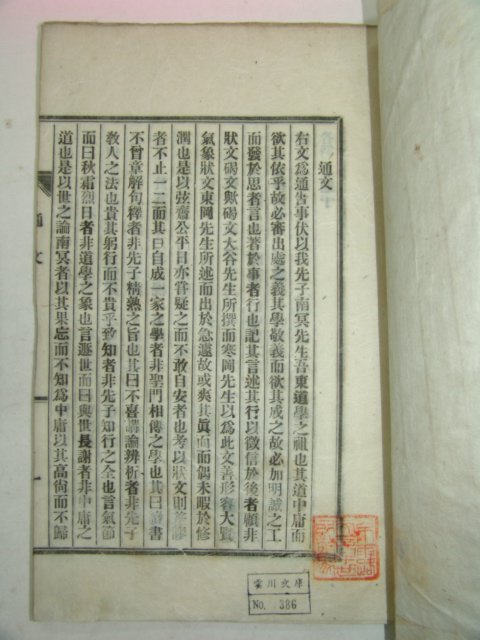 通文
右文爲通告事伏以我先子南冥先生吾東道學之祖也其道中庸而
欲其依乎故必審出處之義其學敬義而欲其成之故必加明誠之工
而發於思者言也著於事者行也記其言述其行以徵信於後者顧非
狀文碣文歟碣文大谷先生所撰而寒岡先生以爲此文善形容大賢
氣象狀文東岡先生所述而出於急遽故或爽其眞面而偶未暇於修
潤也是以弦齋公平目亦嘗疑之而不敢自安者也考以狀文則
者不止一二而其曰自成一家之學者非聖門相傳之學也其曰 書
不曾章解句釋者非先子精熟之旨也其曰不喜講論辨析者非先子
教人之法也貴其躬行而不貴乎致知者非先子知行之全也言氣節
而曰秋霜烈日者非道學之象也言遯世而曰與世長謝者非中庸之
道也是以世之論南冥者以其果忘而不知爲中庸以其高尙而不歸
通文
一
雲川文庫
No. 386